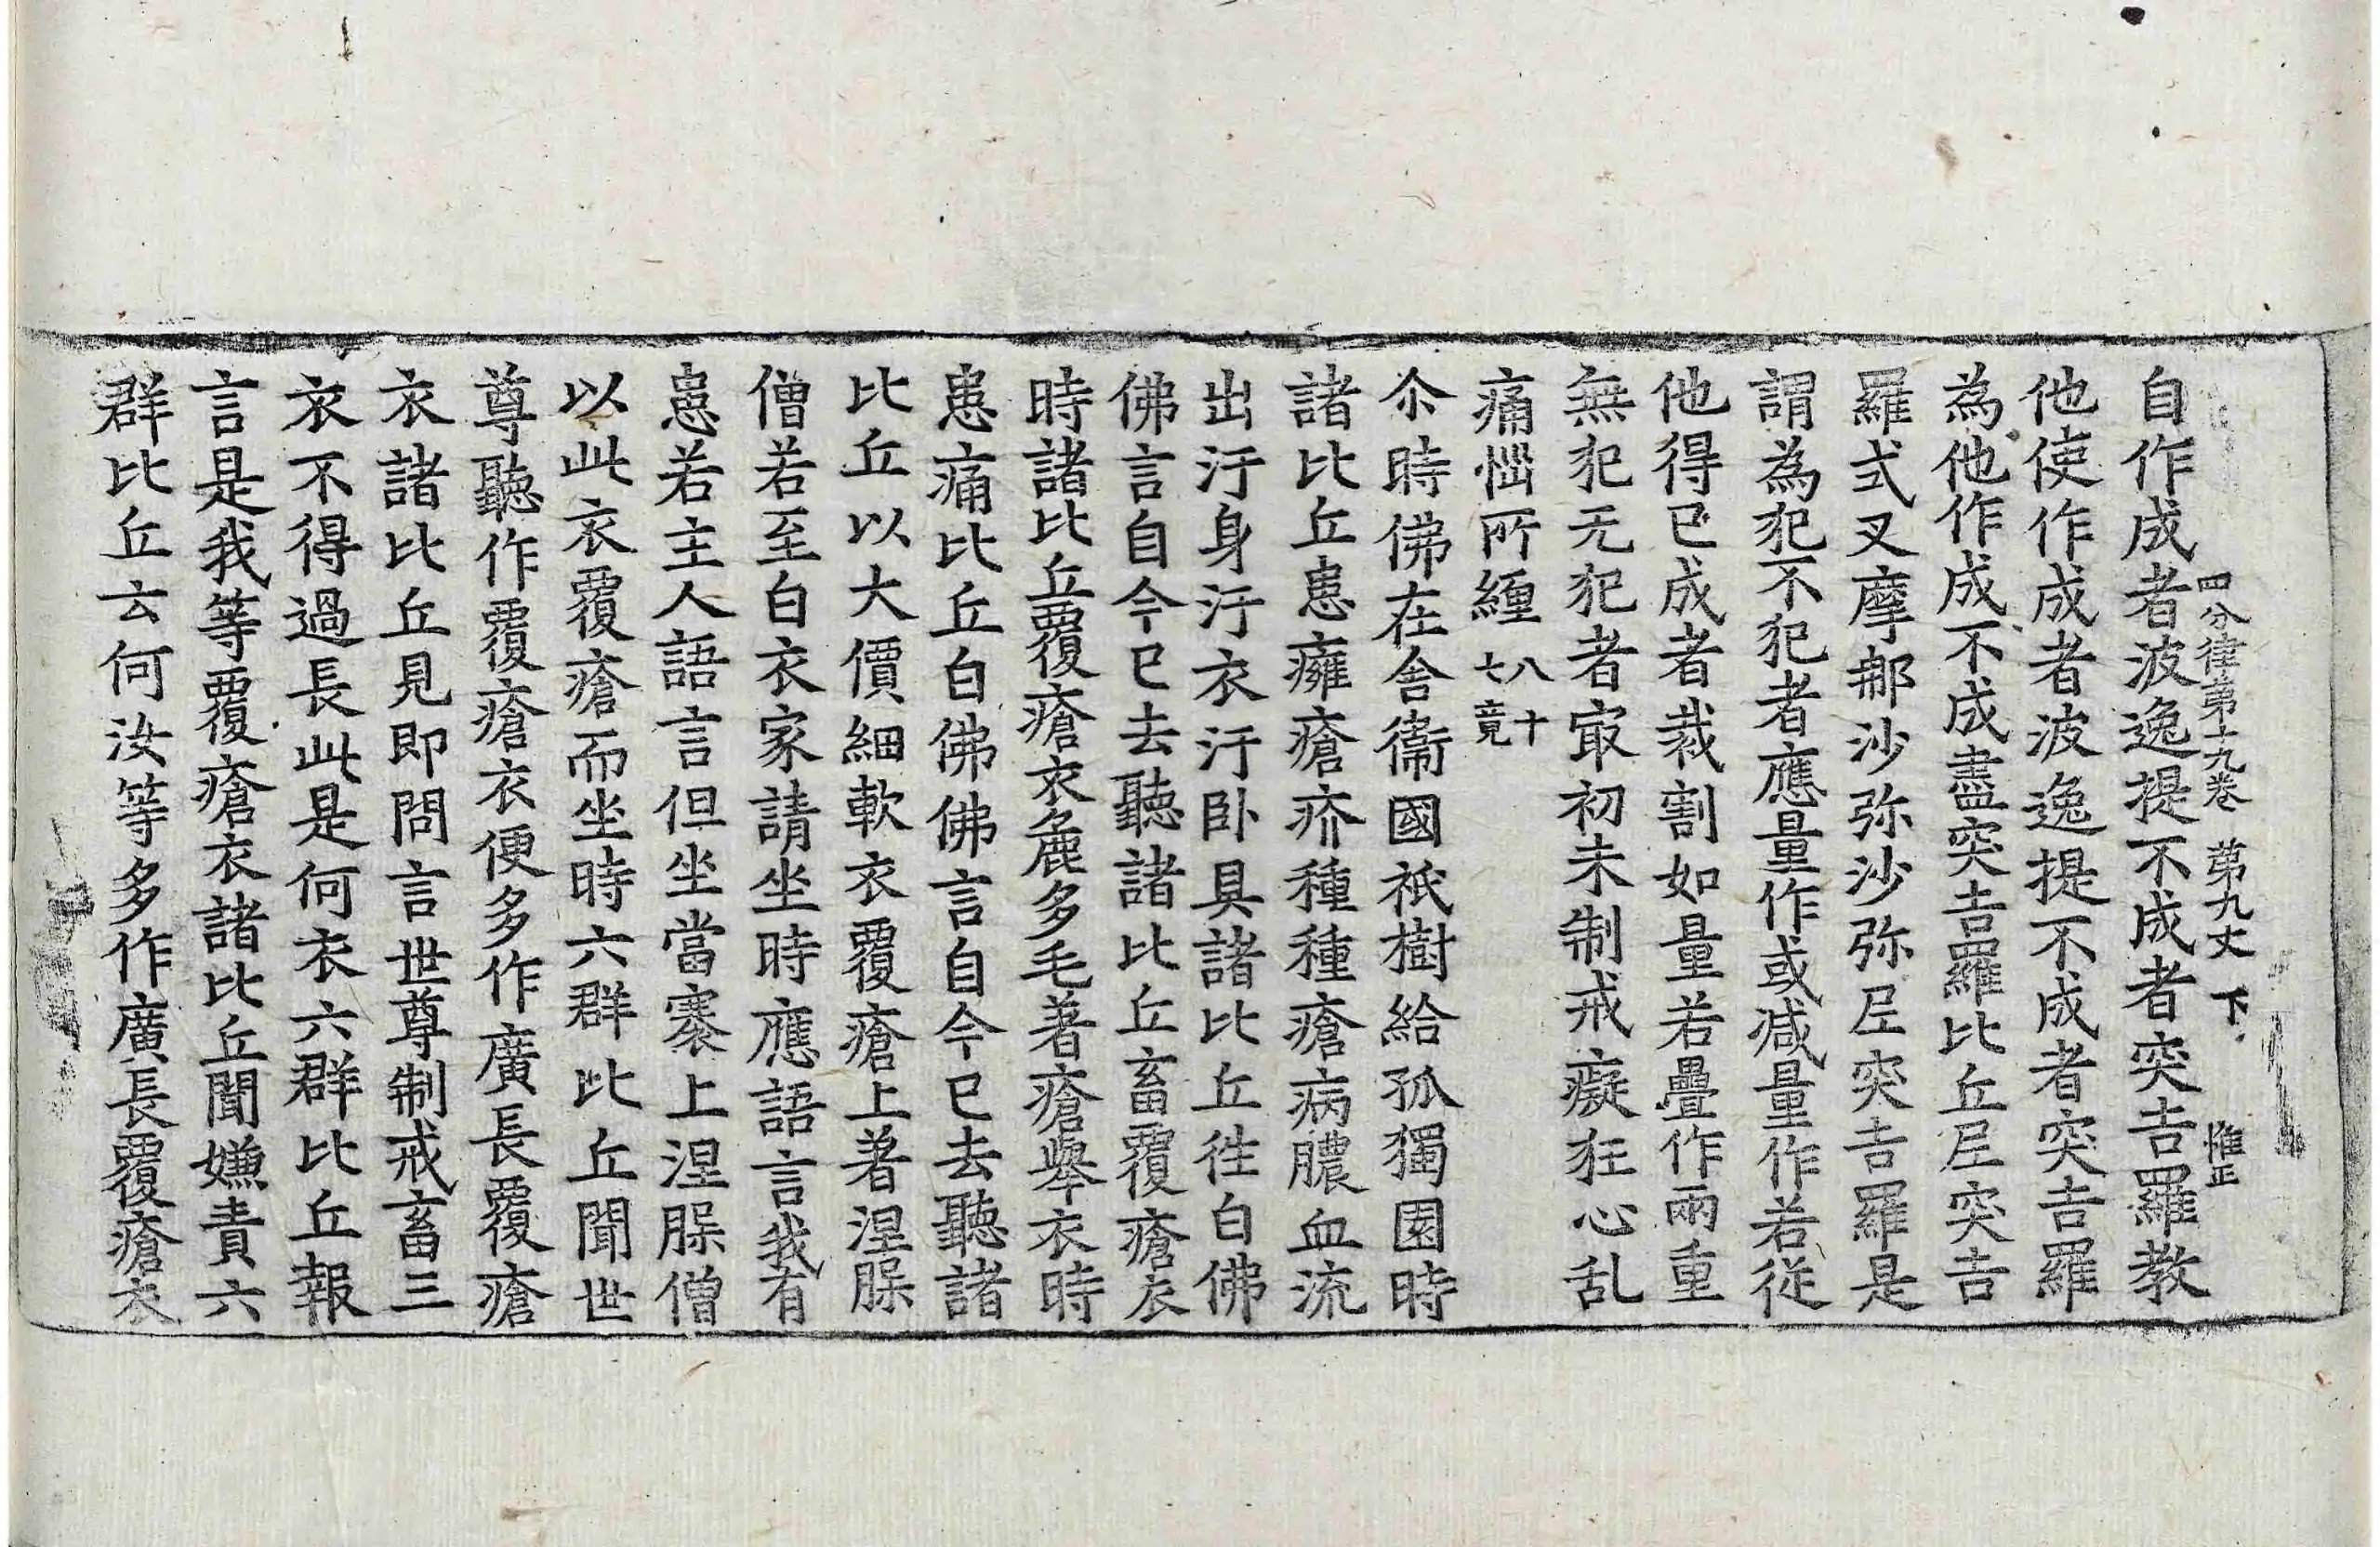 四分律第十九卷 第九丈 下 惟正
自作成者波逸提不成者突吉羅教
他使作成者波逸提不成者突吉羅
為他作成不成盡突吉羅比丘尼突吉
羅式叉摩那沙弥沙弥尼突吉羅是
謂為犯不犯者應量作或减量作若從
他得已成者裁割如量若疊作兩重
無犯无犯者㝡初未制戒癡狂心乱
痛惱所纏 八十七竟
尒時佛在舍衞國祇樹給孤獨園時
諸比丘患癰瘡疥種種瘡病膿血流
出汙身汙衣汙卧具諸比丘徃白佛
佛言自今已去聽諸比丘畜覆瘡衣
時諸比丘覆瘡衣麁多毛著瘡舉衣時
患痛比丘白佛佛言自今已去聽諸
比丘以大價細軟衣覆瘡上著涅𦞅
僧若至白衣家請坐時應語言我有
患若主人語言但坐當褰上涅𦞅僧
以此衣覆瘡而坐時六群比丘聞世
尊聽作覆瘡衣便多作廣長覆瘡
衣諸比丘見即問言世尊制戒畜三
衣不得過長此是何衣六群比丘報
言是我等覆瘡衣諸比丘聞嫌責六
群比丘云何汝等多作廣長覆瘡衣